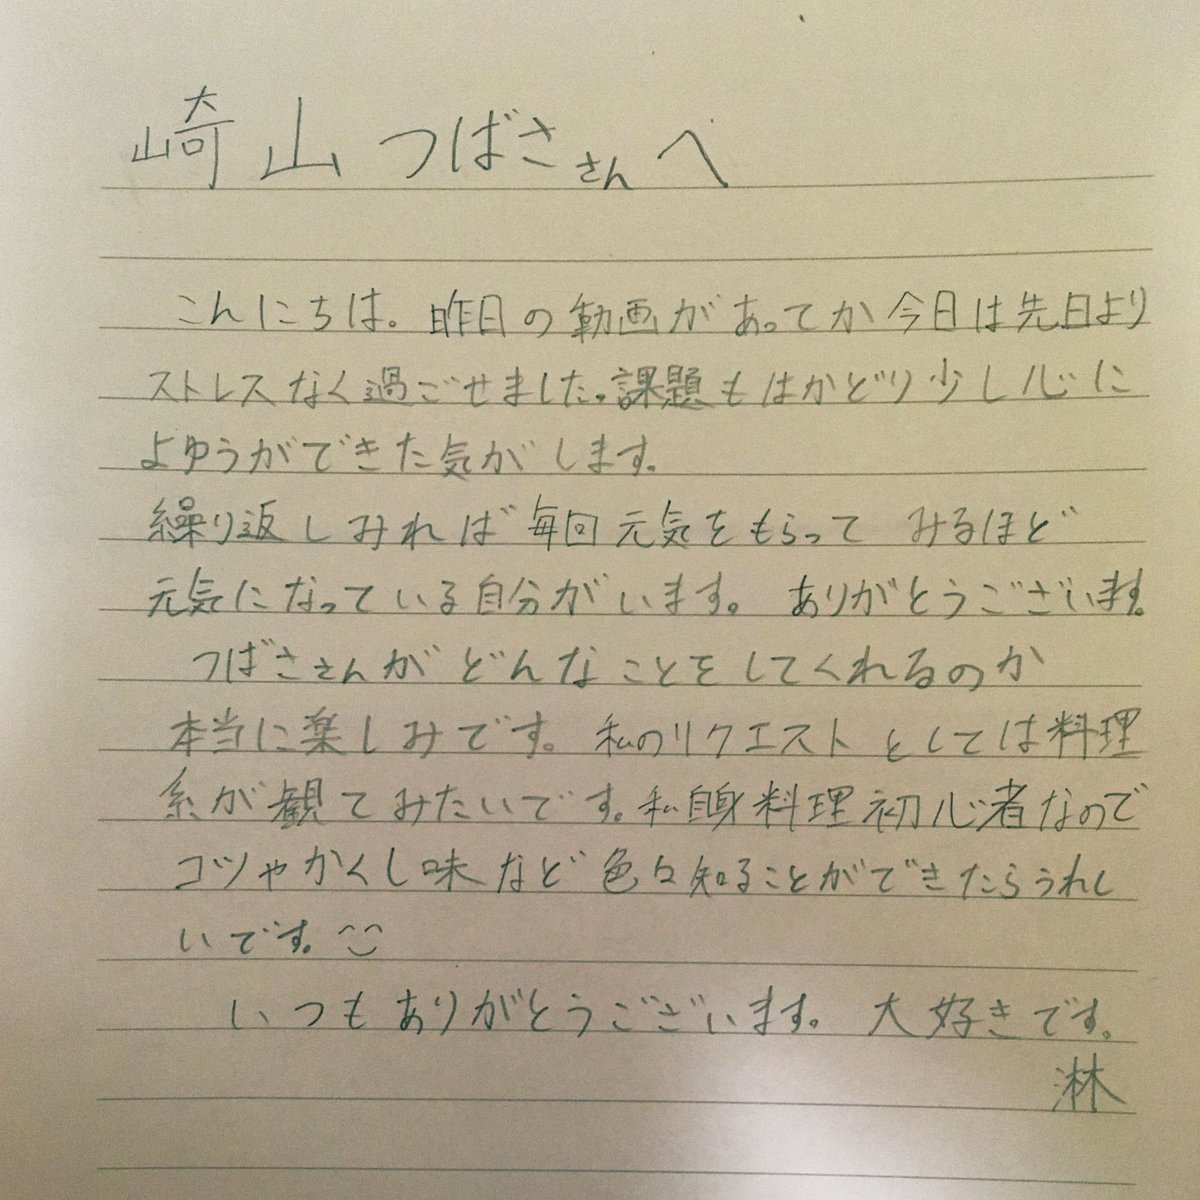 崎山つばささんへ
こんにちは。昨日の動画があってか今日は先日より
ストレスなく過ごせました。課題もはかどり少し心に
よゆうができた気がします。
繰り返しみれば毎回元気をもらって みるほど
元気になっている自分がいます。 ありがとうございます。
つばささんがどんなことをしてくれるのか
本当に楽しみです。私のリクエストとしては料理
系が観てみたいです。私自身料理初心者なので
コツやかくし味など色々知ることができたらうれし
いです。^^
いつもありがとうございます。大好きです。
淋